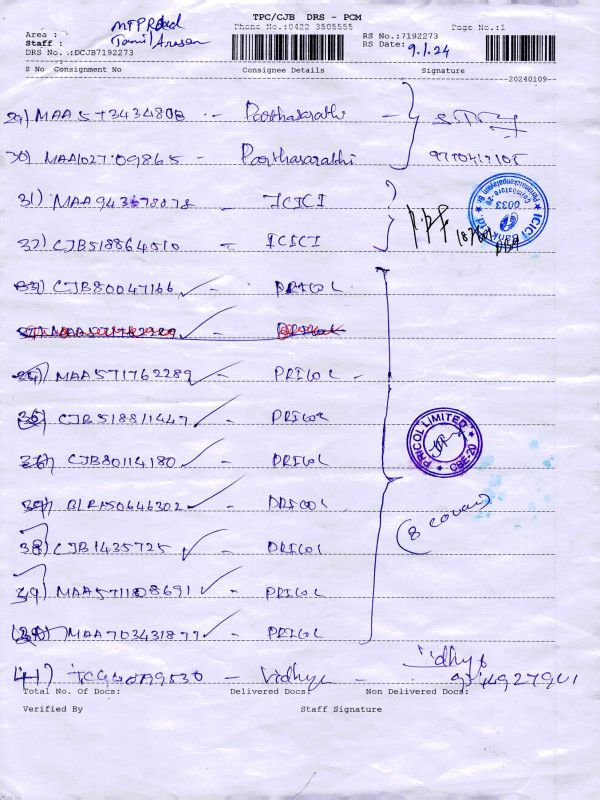 TPC/CJB DRS - PCM
Phone No.:0422 3505555 Page No.:1
Area : MTP Road
Staff : Tamil Arasan
DRS No. :DCJB7192273
RS No.:7192273
RS Date: 9.1.24
S No Consignment No Consignee Details Signature
20240109
29) MAA573434808 - Parthasarathi -
30) MAA1027109865 - Parthasarathi
31) MAA943678078 - ICICI
32) CJB518864510 - ICICI
ICICI Bank Ltd. 0033 Coimbatore
33) CJB80047166 - PRICOL
PRICOL
MAA571762289 - PRICOL -
CJB518811447 - PRICOL
CJB80114180 - PRICOL
PRICOL LIMITED CBE-20
BLR150646302 - PRICOL
(8 covers)
38) CJB1435725 - PRICOL
39) MAA571108691 - PRICOL
MAA703431877 - PRICOL
41) - Vidhya - Vidhya
Total No. Of Docs: Delivered Docs: Non Delivered Docs:
Verified By Staff Signature